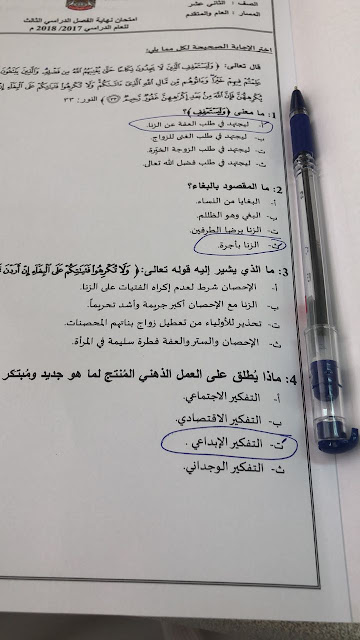 الصف : الثاني عشر
المسار : العام والمتقدم
امتحان نهاية الفصل الدراسي الثالث
للعام الدراسي 2017/ 2018 م
اختر الإجابة الصحيحة لكل مما يلي:
قال تعالى: ﴿ وَلْيَسْتَعْفِفِ الَّذِينَ لَا يَجِدُونَ نِكَاحًا حَتَّىٰ يُغْنِيَهُمُ اللَّهُ مِن فَضْلِهِ وَالَّذِينَ يَبْتَغُونَ
عَلِمْتُمْ فِيهِمْ خَيْرًا وَآتُوهُم مِّن مَّالِ اللَّهِ الَّذِي آتَاكُمْ وَلَا تُكْرِهُوا فَتَيَاتِكُمْ عَلَى الْبِغَاءِ إِنْ
يُكْرِههُّنَّ فَإِنَّ اللَّهَ مِن بَعْدِ إِكْرَاهِهِنَّ غَفُورٌ رَّحِيمٌ (٣٣) ﴾ النور : ٣٣
1: ما معنى (وَلْيَسْتَعْفِفِ)؟
أ- ليجتهد في طلب العفة عن الزنا.
ب- ليجتهد في طلب الغنى للزواج
ت- ليجتهد في طلب الزوجة الخيّرة.
ث- ليجتهد في طلب فضل الله تعال.
2: ما المقصود بالبغاء؟
أ- البغايا من النساء.
ب- البغي وهو الظلم.
ت- الزنا برضا الطرفين.
ث- الزنا بأجرة.
3: ما الذي يشير إليه قوله تعالى: ﴿ وَلَا تُكْرِهُوا فَتَيَاتِكُمْ عَلَى الْبِغَاءِ إِنْ أَرَدْنَ
أ- الإحصان شرط لعدم إكراه الفتيات على الزنا.
ب- الزنا مع الإحصان أكبر جريمة وأشد تحريماً.
ت- تحذير للأولياء من تعطيل زواج بناتهم المحصنات.
ث- الإحصان والستر والعفة فطرة سليمة في المرأة.
4: ماذا يُطلق على العمل الذهني المُنتج لما هو جديد ومُبتكر
أ- التفكير الاجتماعي.
ب- التفكير الاقتصادي.
ت- التفكير الإبداعي .
ث- التفكير الوجداني.